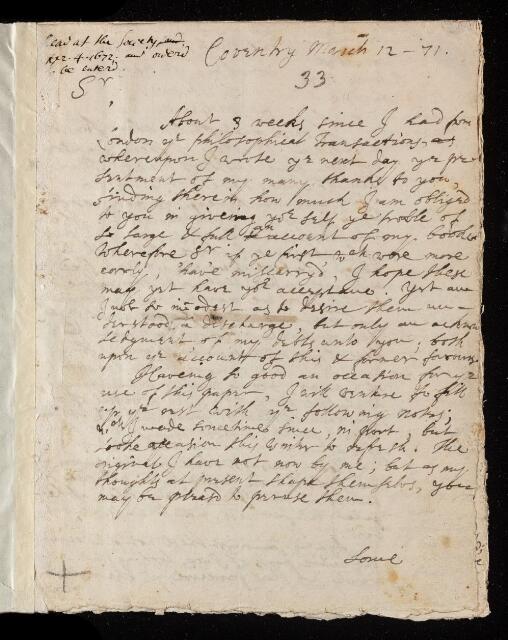 read at the Society and
apr. 4. 1672. and order'd
to be enterd.
Coventry March 12 - 71.
33
Sr
About 3 weeks since I had from
London ye philosophical Transactions,
whereupon I wrote ye next day ye pre
sentment of my many thanks to you,
finding therein how much I am obliged
to you in giveing yor self ye trouble of
so large & full an account of my booke
Wherefore Sr if ye first wch were more
early, have miscarryd, I hope these
may yet have yor acceptance. Yet am
I not so imodest as to desire them un-
derstood a discharge, but only an acknow
ledgment of my debts unto you, both
upon ye account of this & former favours
Haveing so good an occasion for ye
use of this paper, I will venture to fill
up ye rest with ye following notes;
wch I made sometimes since, in part, but
tooke occasion this Winter to refresh. The
original I have not now by me; but as my
thoughts at present shape themselves, you
may be pleasd to peruse them.
Some